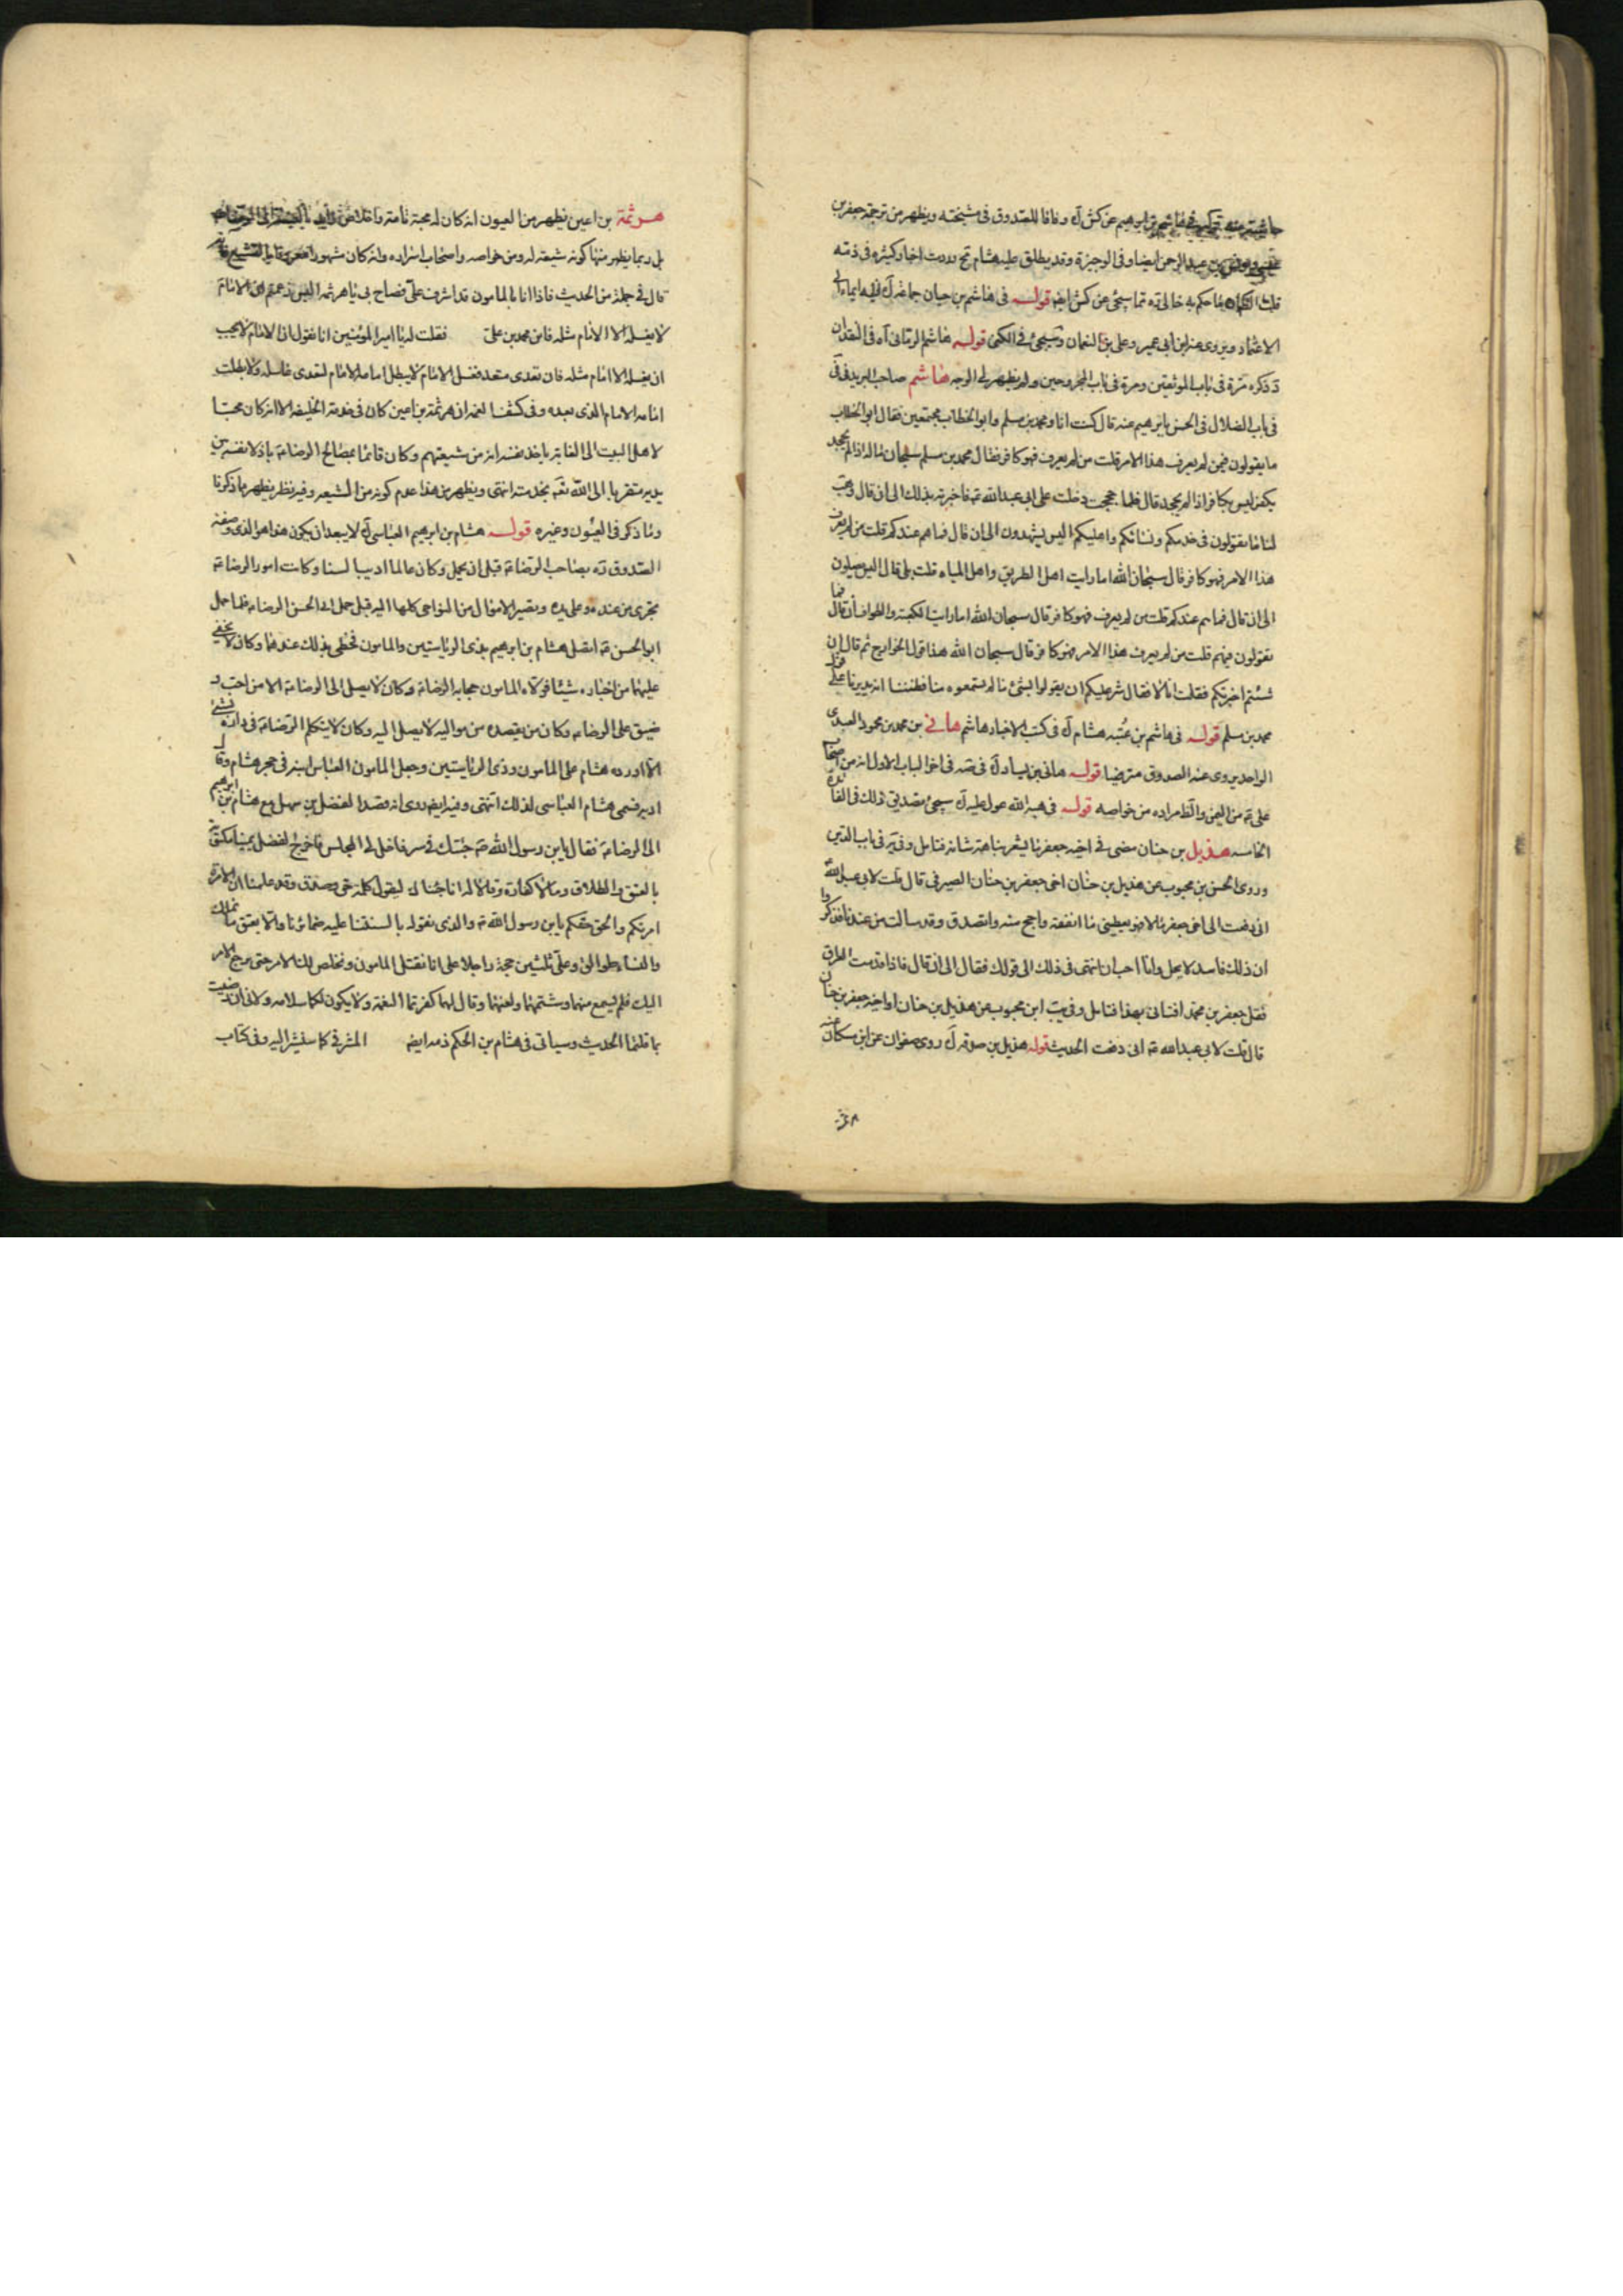 عن كش آه وفاقا للصدوق فى مشيخته ويظهر من ترجمة جعفر بن
عبد الرحمن ايضا وفى الوجيزة وقد يطلق عليه هشام وردت اخبار كثيرة فى ذمه
خالى ره مما سيجئ عن كش ايضا قوله فى هاشم بن حيان
الاعتماد ويروى عنه ابن ابى عمير وعلى بن النعمان وسيجئ فى الكنى قوله هاشم الرمانى آه فى النقد ان
د ذكره مرة فى باب الموثقين ومرة فى باب المجروحين ولم يظهر لى الوجه هاشم صاحب البريد فى فى
فى باب الضلال فى الحسن بابرهيم عنه قال كنت انا ومحمد بن مسلم وابو الخطاب مجتمعين فقال ابو الخطاب
ما يقولون فيمن لم يعرف هذا الامر قلت من لم يعرف فهو كافر فقال محمد بن مسلم سبحان الله ماله اذا لم يجحد
يكفر ليس بكافر اذا لم يجحد قال فلما حججت دخلت على ابى عبد الله ع فاخبرته بذلك الى ان قال
لنا ما تقولون فى خدمكم ونسائكم واهليكم اليس يشهدون الى ان قال فما هم عندكم قلت من لم يعرف
هذا الامر فهو كافر قال سبحان الله اما رايت اهل الطريق واهل المياه قلت بلى قال اليس يصلون
الى ان قال فما هم عندكم قلت من لم يعرف فهو كافر قال سبحان الله اما رايت الكعبة والطواف الى ان قال فما
تقولون فيهم قلت من لم يعرف هذا الامر فهو كافر قال سبحان الله هذا قول الخوارج ثم قال ان
شئتم اخبرتكم فقلت انا لا فقال شر عليكم ان يقولوا بشئ ما لم يسمعوه منا فظننا انه يديرنا على قول
محمد بن مسلم قوله فى هاشم بن عتبه هشام آه فى كتب الاخبار هاشم هانى بن محمد بن محمود العبدى
الواحد يروى عنه الصدوق مترضيا قوله هانى بن نيار آه فى صه فى اخر الباب الاول انه من اصحاب
على ع من اليمن والظ مراده من خواصه قوله فى هبة الله عول عليه آه سيجئ تصديق ذلك فى الفائدة
الخامسه هذيل بن حنان مضى فى اخيه جعفر ما يشير بنباهة شانه فتامل وفى فى باب الدين
وروى الحسن بن محبوب عن هذيل بن حنان اخى جعفر بن حنان الصيرفى قال قلت لابى عبد الله
انى دفعت الى اخى جعفر مالا فهو يعطينى ما انفقه واحج منه واتصدق وقد سالت من عندنا فذكروا
ان ذلك فاسد لا يحل وانا احب ان انتهى فى ذلك الى قولك فقال الى ان قال فاذا قدمت العراق
فقل جعفر بن محمد افتانى بهذا فتامل وفى يب ابن محبوب عن هذيل بن حنان اواخيه جعفر بن حنان
قال قلت لابى عبد الله ع انى دفعت الحديث قوله هذيل بن صدقه آه روى صفوان عن ابن مسكان عنه
هرثمة بن اعين يظهر من العيون انه كان له محبة تامة واخلاص
بل ربما يظهر منها كونه شيعته له ومن خواصه واصحاب اسراره وانه كان مشهورا
قال فى جملة من الحديث فاذا انا بالمامون قد اشرف على فصاح بى يا هرثمه اليس زعمتم ان الامام
لا يغسله الا الامام مثله فاين محمد بن على فقلت له يا امير المؤمنين انا نقول ان الامام لا يجب
ان يغسله الا امام مثله فان تعدى متعد فغسل الامام لا يبطل امامة الامام لتعدى غاسله ولا بطلت
امامة الامام الذى بعده وفى كشف الغمه ان هرثمة بن اعين كان فى خدمة الخليفه الا انه كان محبا
لاهل البيت الى الغاية ياخذ نفسه انه من شيعتهم وكان قائما بمصالح الرضا ع باذلا نفسه بين
يديه متقربا الى الله تعه بخدمته انتهى ويظهر من هذا عدم كونه من الشيعه وفيه نظر يظهر مما ذكرنا
وما ذكر فى العيون وغيره قوله هشام بن ابرهيم العباسى آه لا يبعد ان يكون هذا هو الذى وصفه
الصدوق ره بصاحب الرضا ع قبل ان يحمل وكان عالما اديبا لسنا وكانت امور الرضا ع
تجرى من عنده وعلى يده وتصير الاموال من النواحى كلها اليه قبل حمل ابى الحسن الرضا ع فلما حمل
ابو الحسن ع اتصل هشام بن ابرهيم بذى الرياستين والمامون فحظى بذلك عندهما وكان لا يخفى
عليهما من اخباره شيئا فولاه المامون حجابة الرضا ع وكان لا يصل الى الرضا ع الا من احب و
ضيق على الرضا ع وكان من يقصده من مواليه لا يصل اليه وكان لا يتكلم الرضا ع فى داره بشئ
الا اورده هشام على المامون وذى الرياستين وجعل المامون العباس ابنه فى حجر هشام وقال
ادبه فسمى هشام العباسى لذلك انتهى وفيه ايضا روى انه قصد الفضل بن سهل مع هشام بن ابرهيم
الى الرضا ع فقال يابن رسول الله ص جئتك فى سر فاخل لى المجلس فاخرج الفضل يمينا مكتوبة
بالعتق والطلاق وما لا كفارة وقالا له انا جئناك لنقول كلمة حق وصدق وقد علمنا ان الامرة
امرتكم والحق حقكم يابن رسول الله ص والذى نقوله بالسنتنا عليه ضمائرنا والا يعتق ما نملك
والنساء طوالق وعلى ثلثين حجة راجلا على انا نقتل المامون ونخلص لك الامر حتى يرجع الامر
اليك فلم يسمع منهما وشتمهما ولعنهما وقال لهما كفرتما النعمة ولا يكون لكما سلامه ولا لى ان رضيت
بما قلتما الحديث وسياتى فى هشام بن الحكم ذمه ايضا المشرقى كما سنشير اليه وفى كتاب